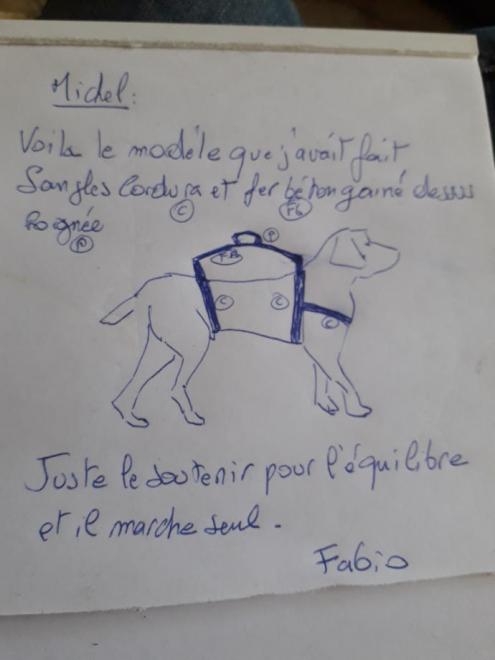 Michel:
Voila le modèle que j'avait fait
Sangles Cordura et fer béton gainé dessus
Pognée
C
Fb
P
P
F.B
C
C
C
Juste le soutenir pour l'équilibre
et il marche seul.
Fabio